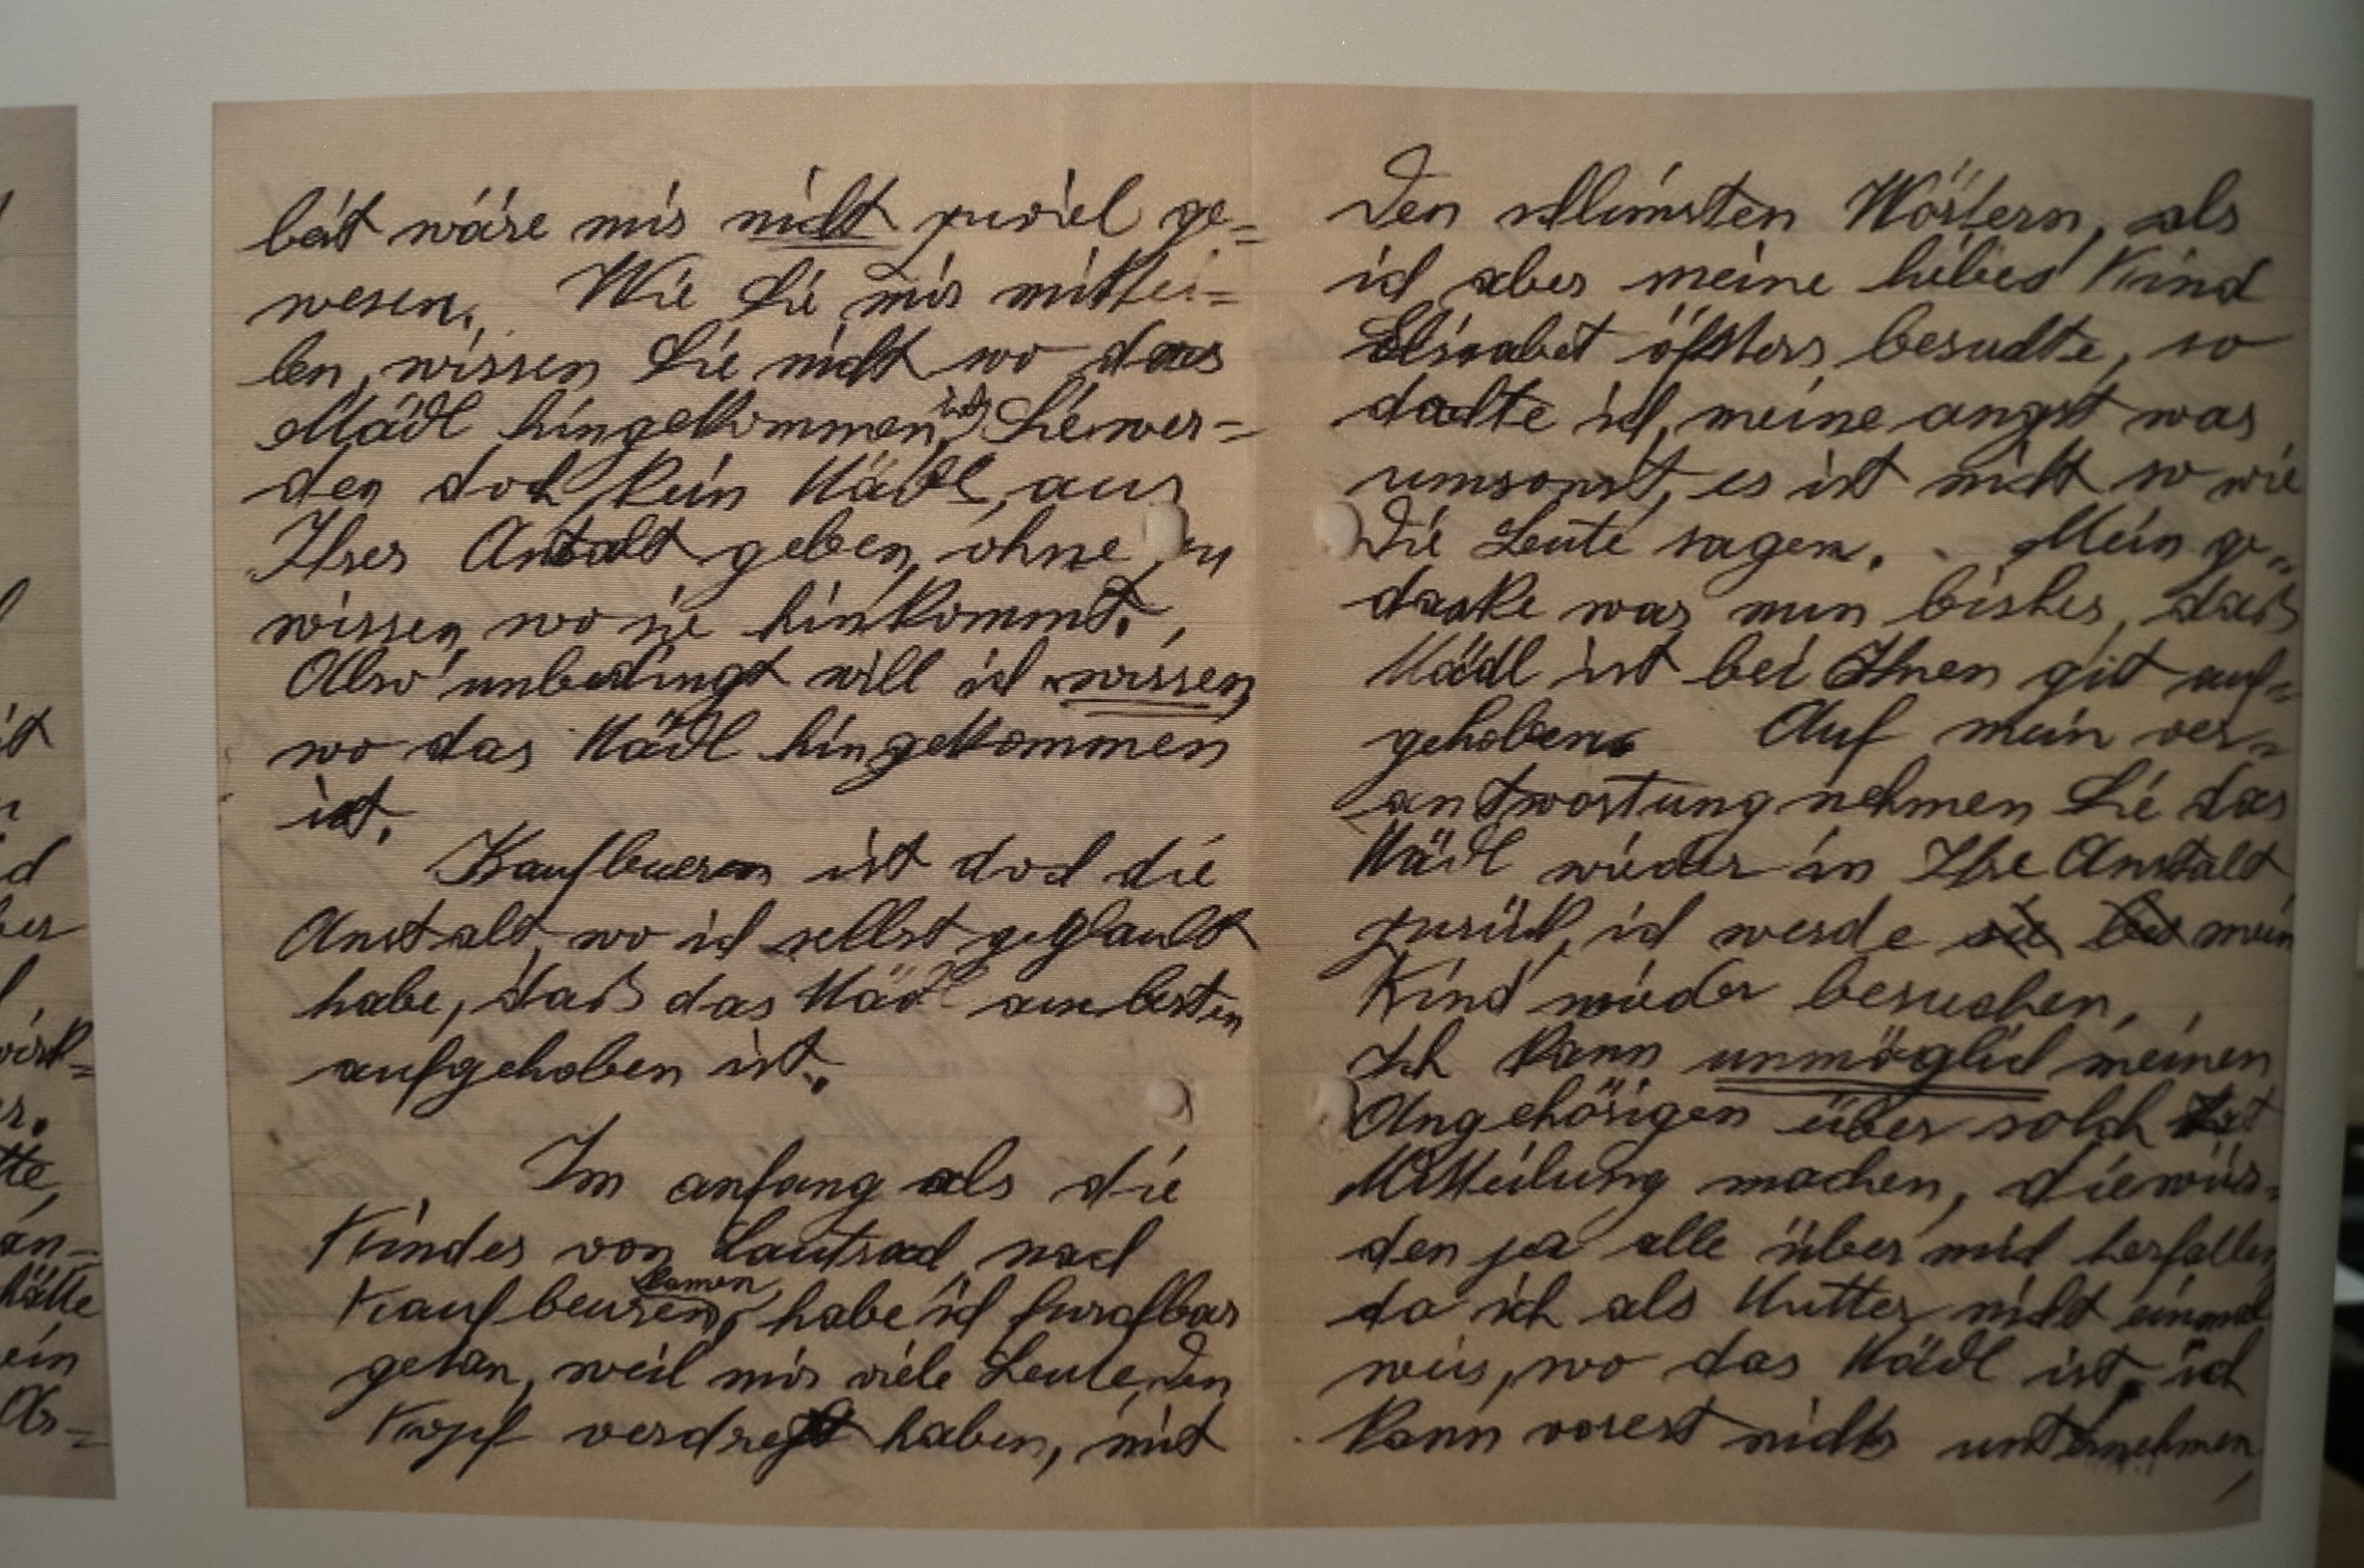 beit wäre mir nicht zuviel ge=
wesen. Wie Sie mir mittei=
len, wissen Sie nicht wo das
Mädl hingekommen ist, Sie wer=
den doch kein Mädl, aus
Ihrer Anstalt geben, ohne zu
wissen, wo sie hinkommt.
Also unbedingt will ich wissen,
wo das Mädl hingekommen
ist.
Kaufbeuren ist doch die
Anstalt, wo ich selbst geglaubt
habe, daß das Mädl am besten
aufgehoben ist.
Im anfang als die
Kinder von Lautrach nach
Kaufbeuren kamen, habe ich furchbar
getan, weil mir viele Leute, den
Kopf verdreht haben, mit
den schlimsten Wörtern, als
ich aber meine liebes Kind
Elisabet öfters besuchte, so
dachte ich, meine angst war
umsonst, es ist nicht so wie
die Leute sagen. Mein ge=
danke war nun bisher, das
Mädl ist bei Ihnen gut auf=
gehoben. Auf mein ver=
antwortung nehmen Sie das
Mädl wieder in Ihre Anstalt
zurück, ich werde mein
Kind wieder besuchen,
Ich kann unmöglich meinen
Angehörigen über solch
Mitteilung machen, die wür=
den ja alle über mich herfallen,
da ich als Mutter nicht einmal
weis, wo das Mädl ist, ich
kann vorest nichts unternehmen,
ber
hätte
ein